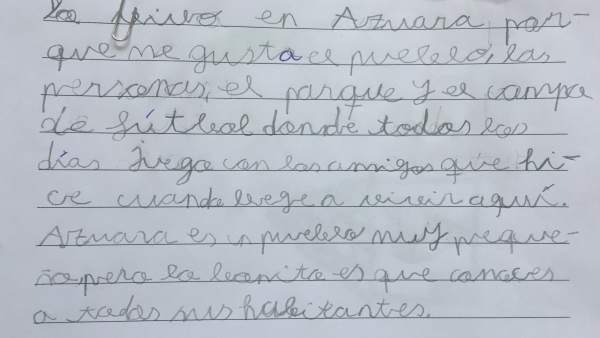 Yo vivo en Azuara por-
que me gusta el pueblo, las
personas, el parque y el campo
de fútbol donde todos los
días juego con los amigos que hi-
ce cuando llegé a vivir aquí.
Azuara es un pueblo muy peque-
ño, pero lo bonito es que conoces
a todos sus habitantes.